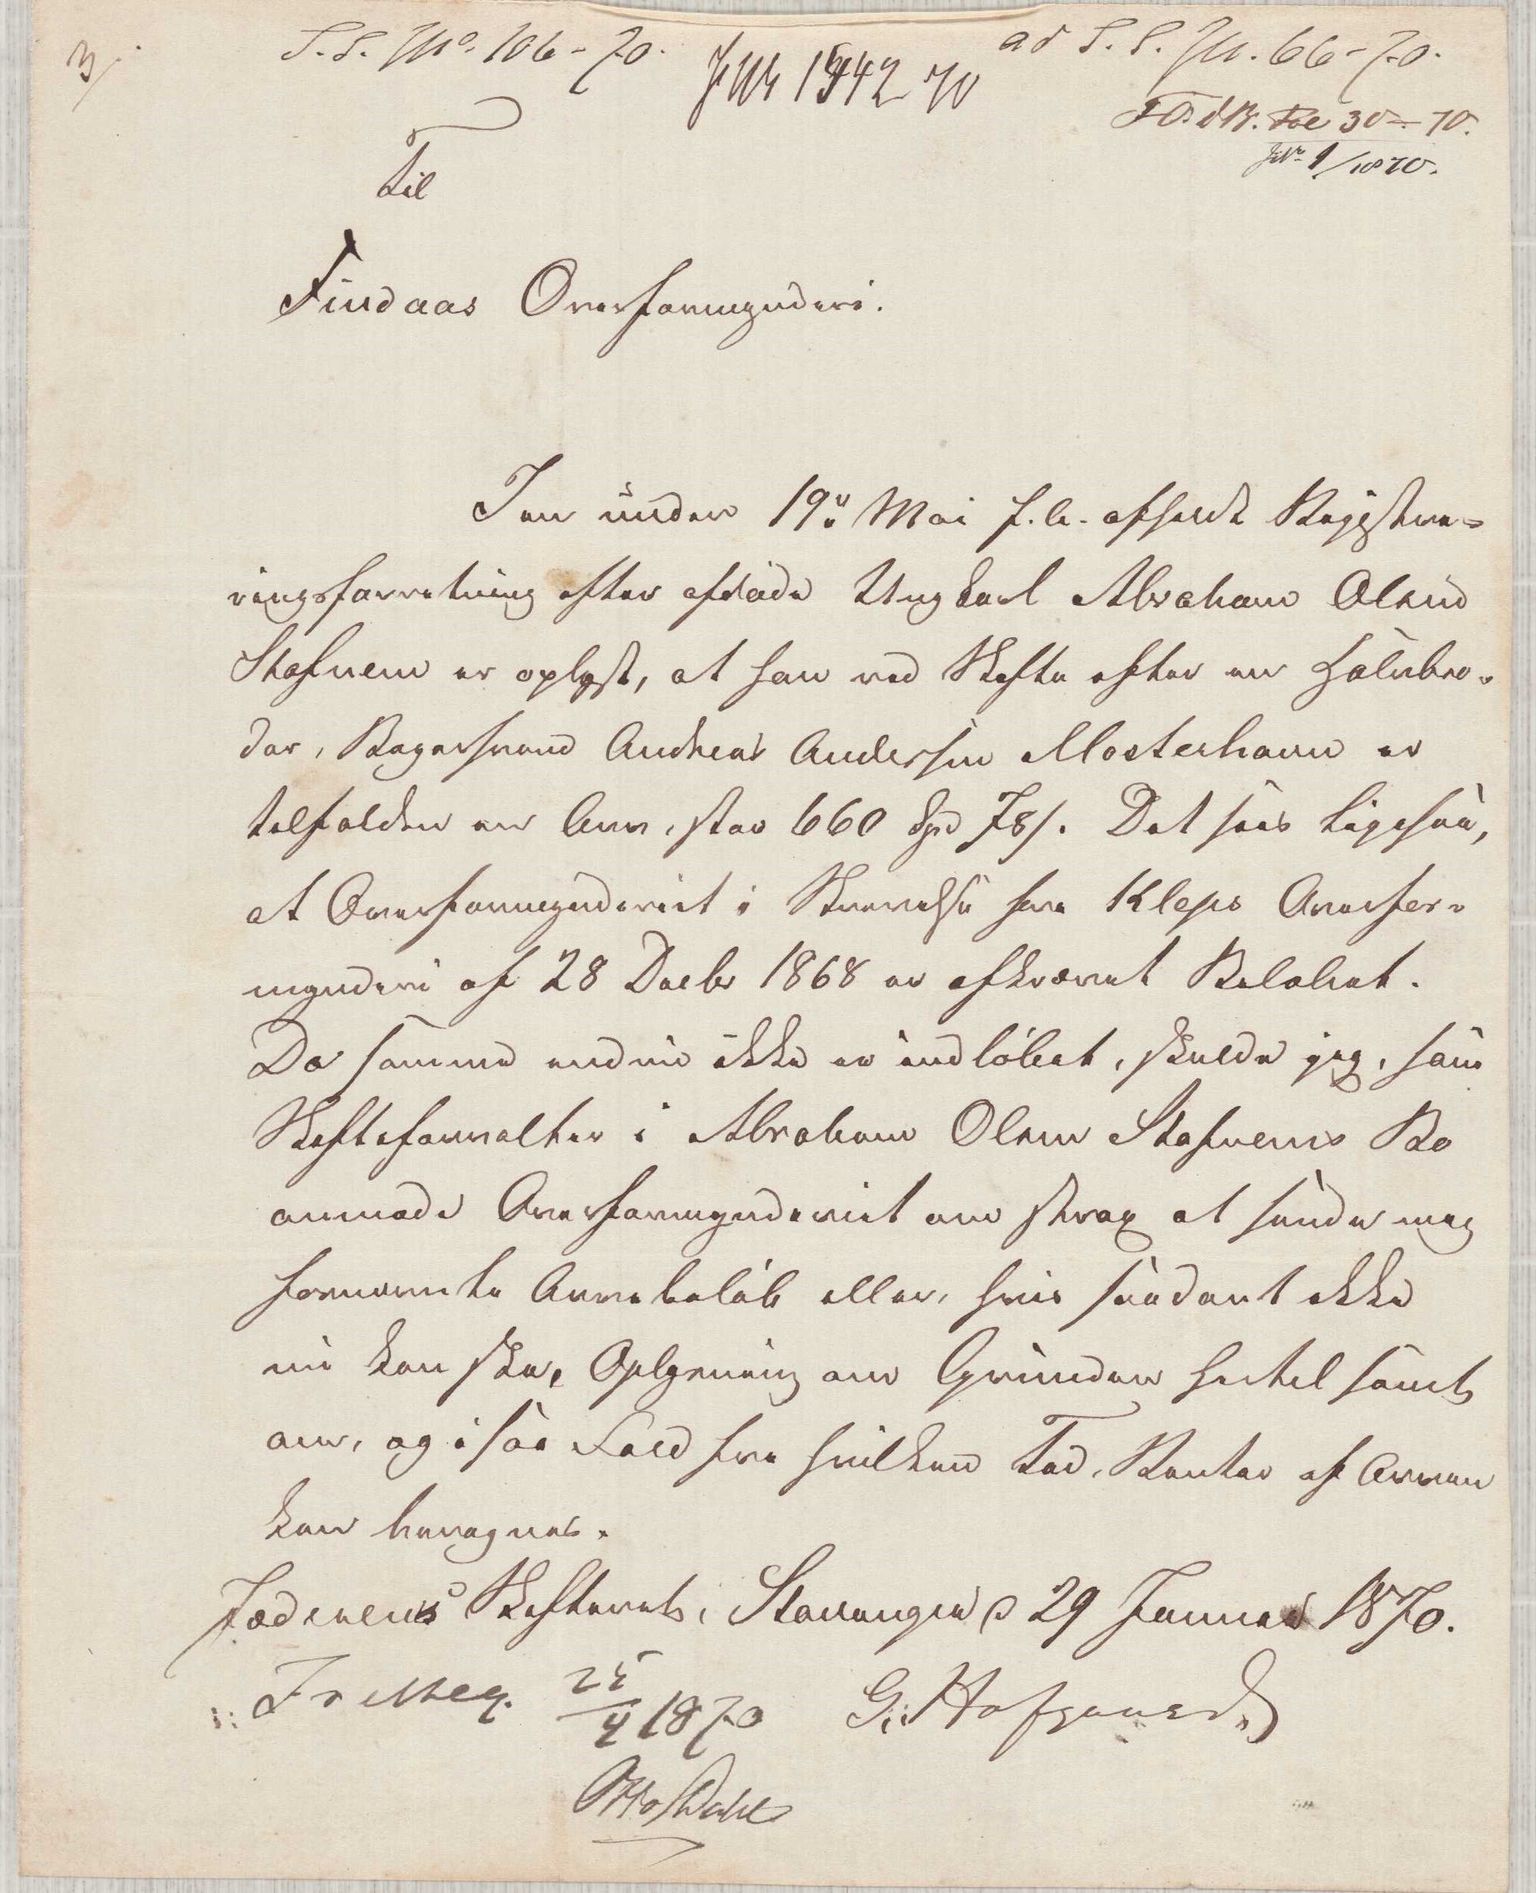 3/.
S. S. No. 106-70.
ad S. S. No. 66-70.
JNr 1942 70
F.O. 30-70.
JNr. 1/1870.
Til
Findaas Overformynderi.
I en under 19de Mai f. A. afholdt Registre-
ringsforretning efter afdøde Ungkarl Abraham Olsen
Stafnem er oplyst, at han ved Skifte efter en Halvbro-
der, Bagersvend Andreas Andersen Mosterhavn er
tilfalden en Arv, stor 660 Spd 78 s. Det sees ligesaa,
at Overformynderiet i Skrivelse fra Kleps Overfor-
mynderi af 28 Decbr 1868 er afkrævet Beløbet.
Da samme endnu ikke er indløbet, skulde jeg, som
Skifteforvalter i Abraham Olsen Stafnems Bo
anmode Overformynderiet om strax at sende mig
fornævnte Arvebeløb eller, hvis saadant ikke
nu kan skee, Oplysning om Grunden hertil samt
om, og i saa Fald fra hvilken Tid, Renter af Arven
kan beregnes.
Jæderens Skifteret, Stavanger d 29 Januar 1870.
25/4 1870
G. Hofgaard
Otto Dahl